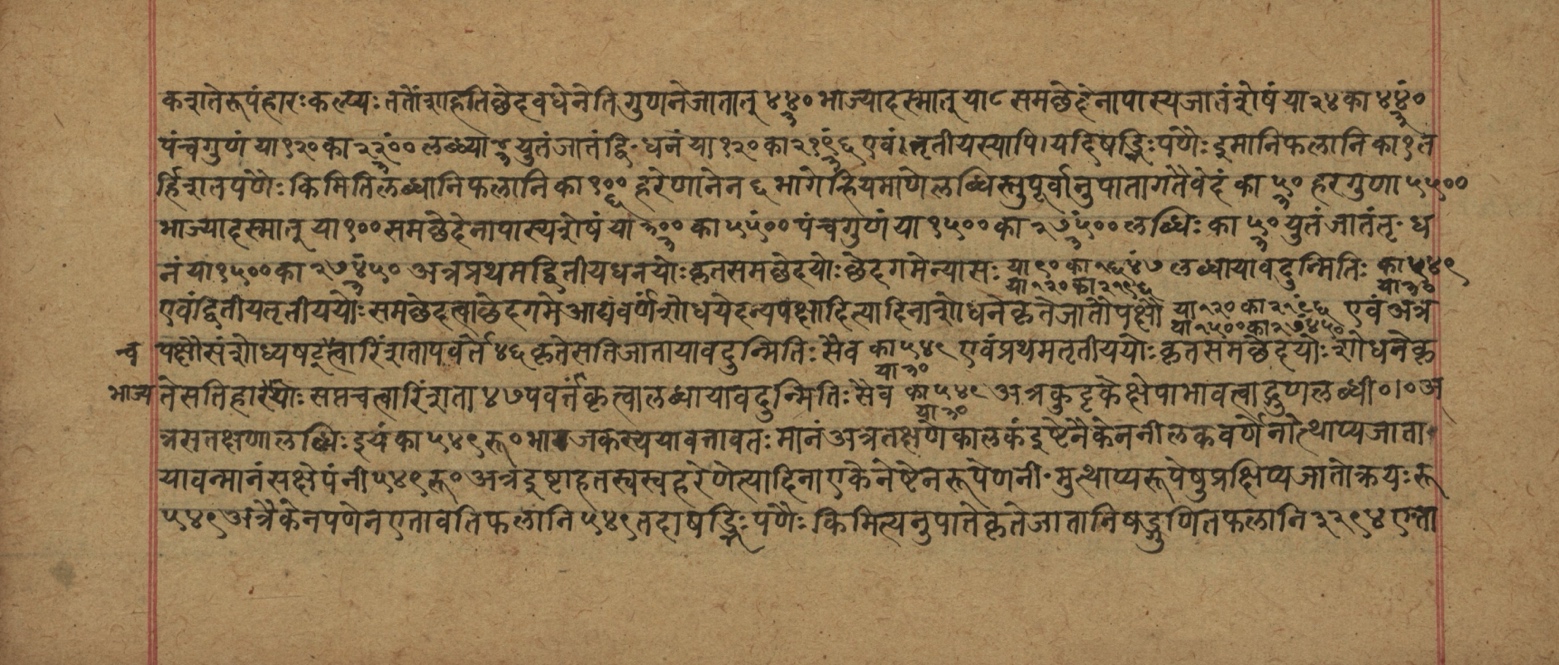 करातेरूपंहारःकल्प्यः ततोंशाहतिछेदवधेनेतिगुणनेजातात् ४४० भाज्यादस्मात् या ८ समछेदेनापास्यजातंशेषं या २४ का ४४०
पंचगुणं या १२० का २२०० लब्ध्या युतंजातंद्वि॰धनं या १२० का २१९६ एवं।तृतीयस्यापि।यदिषड्भिःपणैःइमानिफलानि का १ त
र्हिशतपणैःकिमितिलब्धानिफलानि का १०० हरेणानेन ६ भागेह्रियमाणेलब्धिस्तुपूर्वानुपातागतैवेदं का ५० हरगुणा ५५००
भाज्यादस्मात् या १०० समछेदेनापास्यशेषं या ३०० का ५५०० पंचगुणं या १५०० का २७५०० लब्धिः का ५० युतंजातंतृ॰ध
नंया १५०० का २७४५० अत्रप्रथमद्वितीयधनयोःकृतसमछेदयोःछेदगमेन्यासः या ९० का १६४७ या १२० का २१९६ लब्धायावदुन्मितिः का ५४९ या ३०
एवंद्वितीयतृतीययोःसमछेदत्वाछेदगमेआद्यंवर्णंशोधयेदन्यपक्षादित्यादिनाशोधनेकृतेजातौपक्षौ या १२० का २१९६ या १५०० का २७४५० एवं अत्र
च पक्षौसंशोध्यषट्चत्वारिंशतापवर्ते ४६ कृतेसतिजातायावदुन्मितिः सैव का ५४९ या ३० एवंप्रथमतृतीययोःकृतसमछेदयोःशोधनेकृ
भाज्य तेसतिहारयोः सप्तचत्वारिंशता ४७ पवर्तंकृत्वालब्धायावदुन्मितिः सैव का ५४९ या ३० अत्रकुट्टकेक्षेपाभावत्वाद्गुणलब्धी ०।० अ
त्रसतक्षणालब्धिः इयं का ५४९ रू ० भाजकस्ययावत्तावतःमानंअत्रतक्षणंकालकंइष्टेनैकेननीलकवर्णेनोत्थाप्यजाता
यावन्मानंसक्षेपंनी ५४९ रू ० अत्रइष्टाहतस्वस्वहरेणेत्यादिनाएकेनेष्टेनरूपेणनी॰मुत्थाप्यरूपेषुप्रक्षिप्यजातोक्रयः रू
५४९ अत्रैकेनपणेनएतावतिफलानि ५४९ तदाषड्भिःपणैःकिमित्यनुपातेकृतेजातानिषड्गुणितफलानि ३२९४ एता